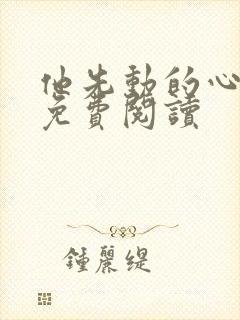 他先動的心
免費閱讀
鍾麗緹